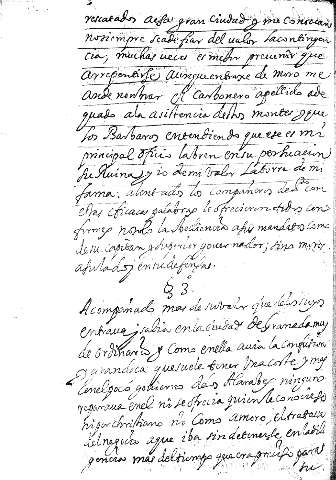 rescatados a esta gran Ciudad y me conserva
no siempre se a de fiar del valor la contingen
cia, muchas veces es mejor prevenir que
arrepentirse Aunque entrase de moro me
an de nombrar el Carbonero apellido ade
quado a la asistencia destos montes, y que
los Barbaros entendiendo que ese es mi
principal oficio labren en su persuacion
su Ruina, y io de mi valor labore de mi
fama. alentados los compañeros de
estas eficaces palabras le ofrecieron todos con
formes no solo la obediencia a sus mandatos como
de su Capitan y superior governador; sino morir
a su lado, y en su defensa.
§ 3.
Acompañado mas de su valor que de los suyos
entrava, y salia en la ciudad de Granada muy
de ordinario y Como en ella avia la Confusion
que suele tener Una corte, y mas
con el poco govierno de los Alarabes ninguno
reparava en el no se ofrecia quien le conociese
hijo de Christiano no Como a moro, el trataba
del negocio a que iba sin detenerse, en la dili
gencia mas del tiempo que era preciso para
su